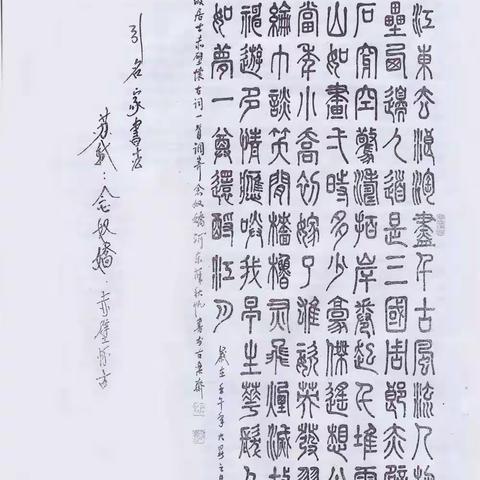 江東去浪淘盡千古風流人物
壘西邊人道是三國周郎赤壁
石穿空驚濤拍岸卷起千堆雪
山如畫弌時多少豪傑遙想公
當年小喬初嫁了雄姿英發羽
綸巾談笑間檣櫓灰飛煙滅故
神遊多情應笑我早生華髮人
如夢一尊還酹江月
歲在壬午年九月
居士赤壁懷古詞一首調寄念奴嬌河東薛秋帆書於百
引名家書法
苏軾：念奴嬌·赤壁怀古